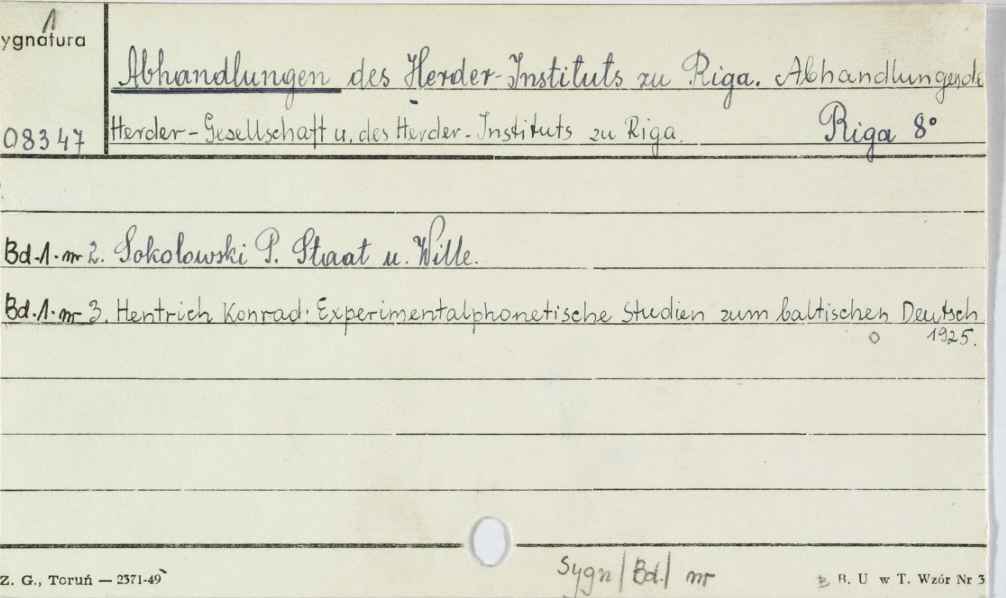 1
ygnatura
Abhandlungen des Herder-Instituts zu Riga. Abhandlungen d.
08347 Herder-Gesellschaft u. des Herder-Instituts zu Riga. Riga 8°
Bd.1. nr 2. Sokolowski P. Staat u. Wille.
Bd.1. nr 3. Hentrich Konrad: Experimentalphonetische Studien zum baltischen Deutsch
1925.
Sygn/Bd./ nr
Z. G., Toruń — 2371-49 B. U w T. Wzór Nr 3